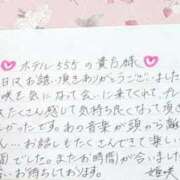 ホテル555の貴方様
日はお誘い頂きありがとうございました
咲を気に会いに来てくれ、プレ
スたくさん感じて気持ち良くなって頂
しかったです。あの音楽が頭から離
ん。お話もたくさんできて楽し
間でした。またお時間が合いました
お待ちしております。
姫咲